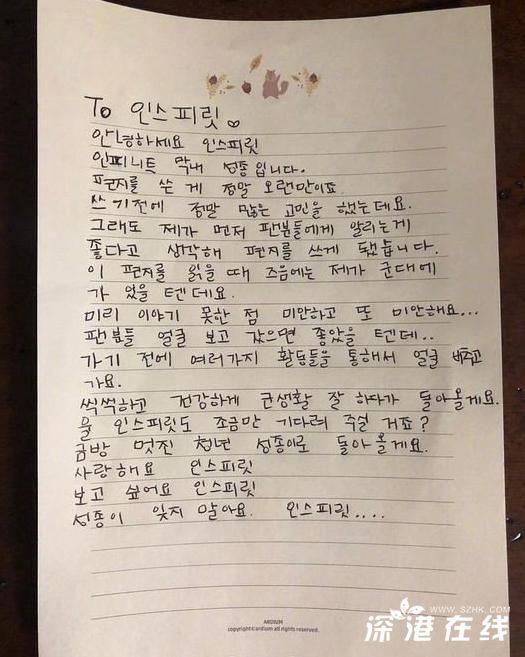 To 인스피릿
안녕하세요 인스피릿
인피니트 막내 성종입니다.
편지를 쓴 게 정말 오랜만이죠
쓰기전에 정말 많은 고민을 했는데요.
그래도 제가 먼저 팬분들에게 알리는게
좋다고 생각해 편지를 쓰게 됐습니다.
이 편지를 읽을 때 즈음에는 제가 군대에
가 있을 텐데요.
미리 이야기 못한 점 미안하고 또 미안해요...
팬분들 얼굴 보고 갔으면 좋았을 텐데..
가기 전에 여러가지 활동들을 통해서 얼굴 비추고
가요.
씩씩하고 건강하게 군생활 잘 하다가 돌아올게요.
울 인스피릿도 조금만 기다려 주실 거죠?
금방 멋진 청년 성종이로 돌아올게요.
사랑해요 인스피릿
보고 싶어요 인스피릿
성종이 잊지 말아요. 인스피릿....
ARDIUM
copyright©ardium all rights reserved.
WWW.SZHK.COM
深港在线